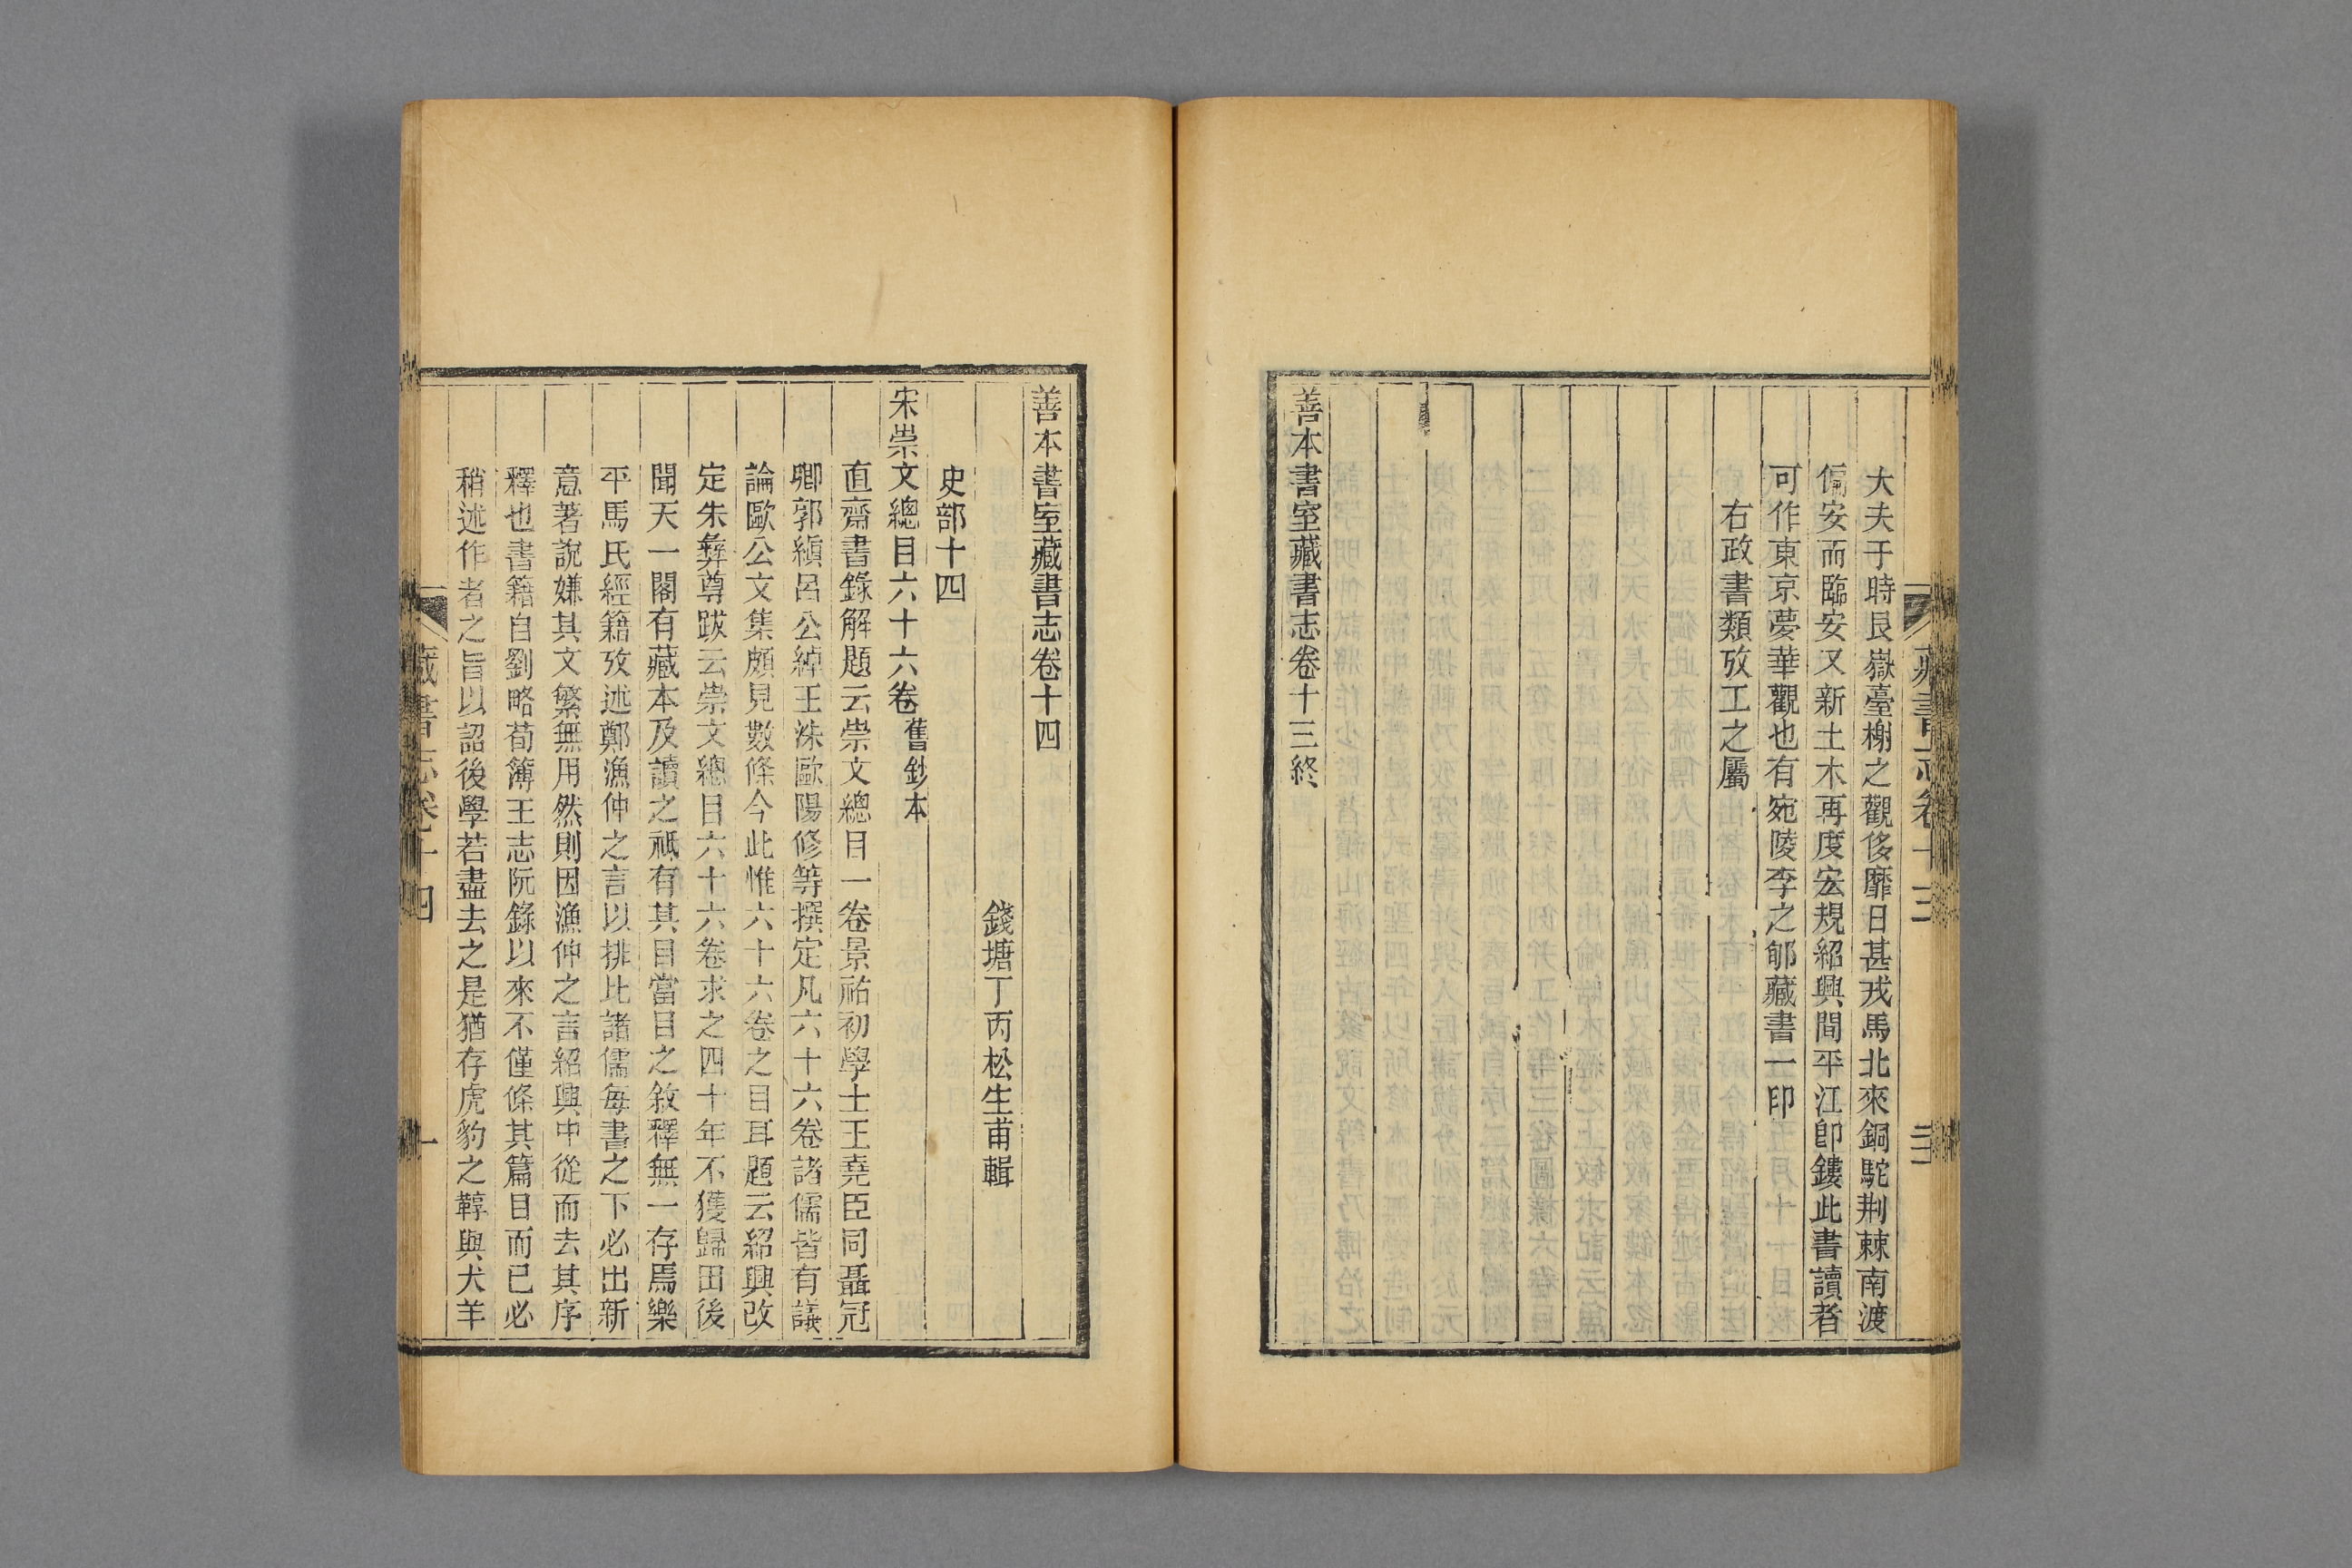 大夫于時艮嶽臺榭之觀侈靡日甚戎馬北來銅駝荆棘南渡
偏安而臨安又新土木再度宏規紹興間平江卽鏤此書讀者
可作東京夢華觀也有宛陵李之郇藏書一印
右政書類攷工之屬
善本書室藏書志卷十三終
善本書室藏書志卷十四
錢塘丁丙松生甫輯
史部十四
宋崇文總目六十六卷 舊鈔本
直齋書錄解題云崇文總目一卷景祐初學士王堯臣同聶冠
卿郭縝呂公綽王洙歐陽修等撰定凡六十六卷諸儒皆有議
論歐公文集頗見數條今此惟六十六卷之目耳題云紹興改
定朱彝尊跋云崇文總目六十六卷求之四十年不獲歸田後
聞天一閣有藏本及讀之祗有其目當日之敘釋無一存焉樂
平馬氏經籍攷述鄭漁仲之言以排比諸儒每書之下必出新
意著說嫌其文繁無用然則因漁仲之言紹興中從而去其序
釋也書籍自劉略荀簿王志阮錄以來不僅條其篇目而已必
稍述作者之旨以詔後學若盡去之是猶存虎豹之鞟與犬羊